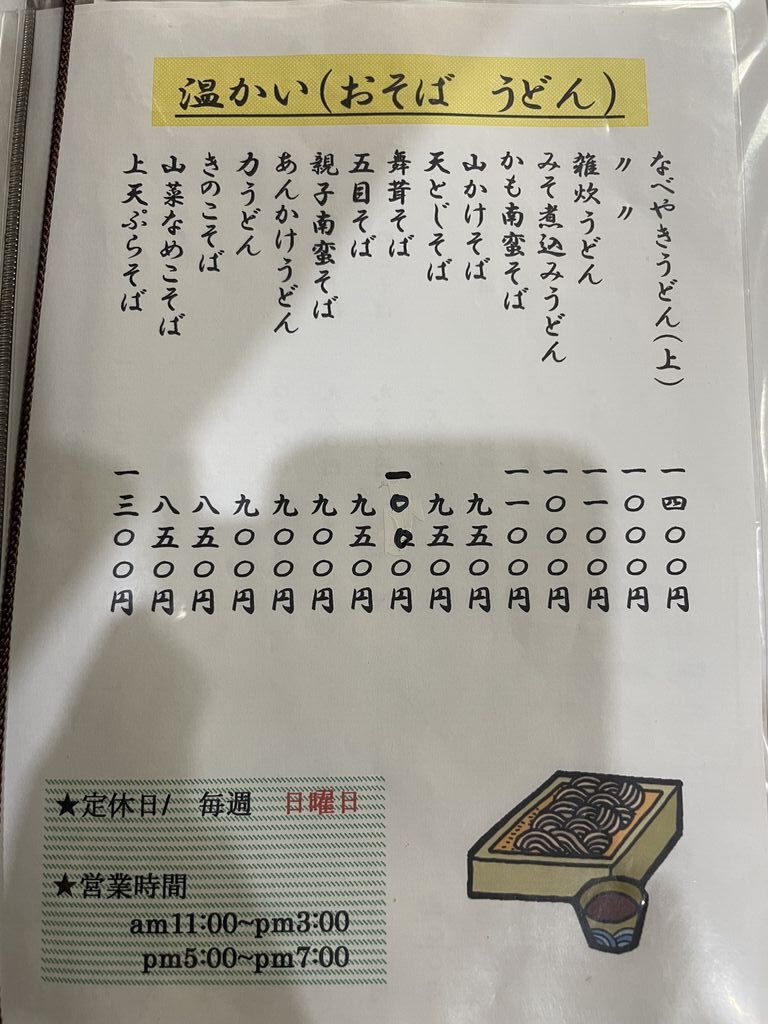 温かい(おそば うどん)
なべやきうどん(上) 一四〇〇円
〃 〃 一〇〇〇円
雑炊うどん 一一〇〇円
みそ煮込みうどん 一〇〇〇円
かも南蛮そば 一一〇〇円
山かけそば 九五〇円
天とじそば 九五〇円
舞茸そば 一〇〇〇円
五目そば 九五〇円
親子南蛮そば 九〇〇円
あんかけうどん 九〇〇円
力うどん 九〇〇円
きのこそば 八五〇円
山菜なめこそば 八五〇円
上天ぷらそば 一三〇〇円
★定休日/ 毎週 日曜日
★営業時間
am11:00~pm3:00
pm5:00~pm7:00